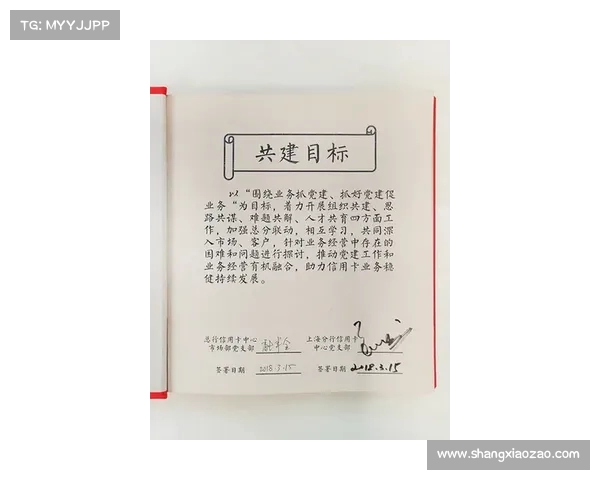 TG: MYYJJPP
共建目标
以“围绕业务抓党建、抓好党建促
业务“为目标，着力开展组织共建、思
路共谋、难题共解、人才共育四方面工
作，加强总分联动，相互学习，共同深
入市场、客户，针对业务经营中存在的
困难和问题进行探讨，推动党建工作和
业务经营有机融合，助力信用卡业务稳
健持续发展。
总行信用卡中心
市场部党支部
上海分行信用卡
中心党支部
签署日期 2018.3.15
签署日期 2018.3.15
www.shangxiaozao.com